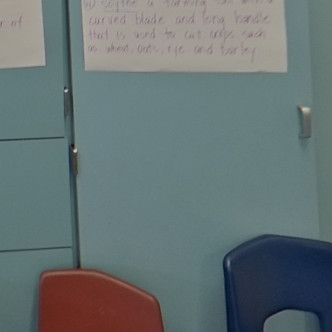 r of
w) scythe a farming tool with a
curved blade and long handle
that is used to cut crops such
as wheat, oats, rye and barley